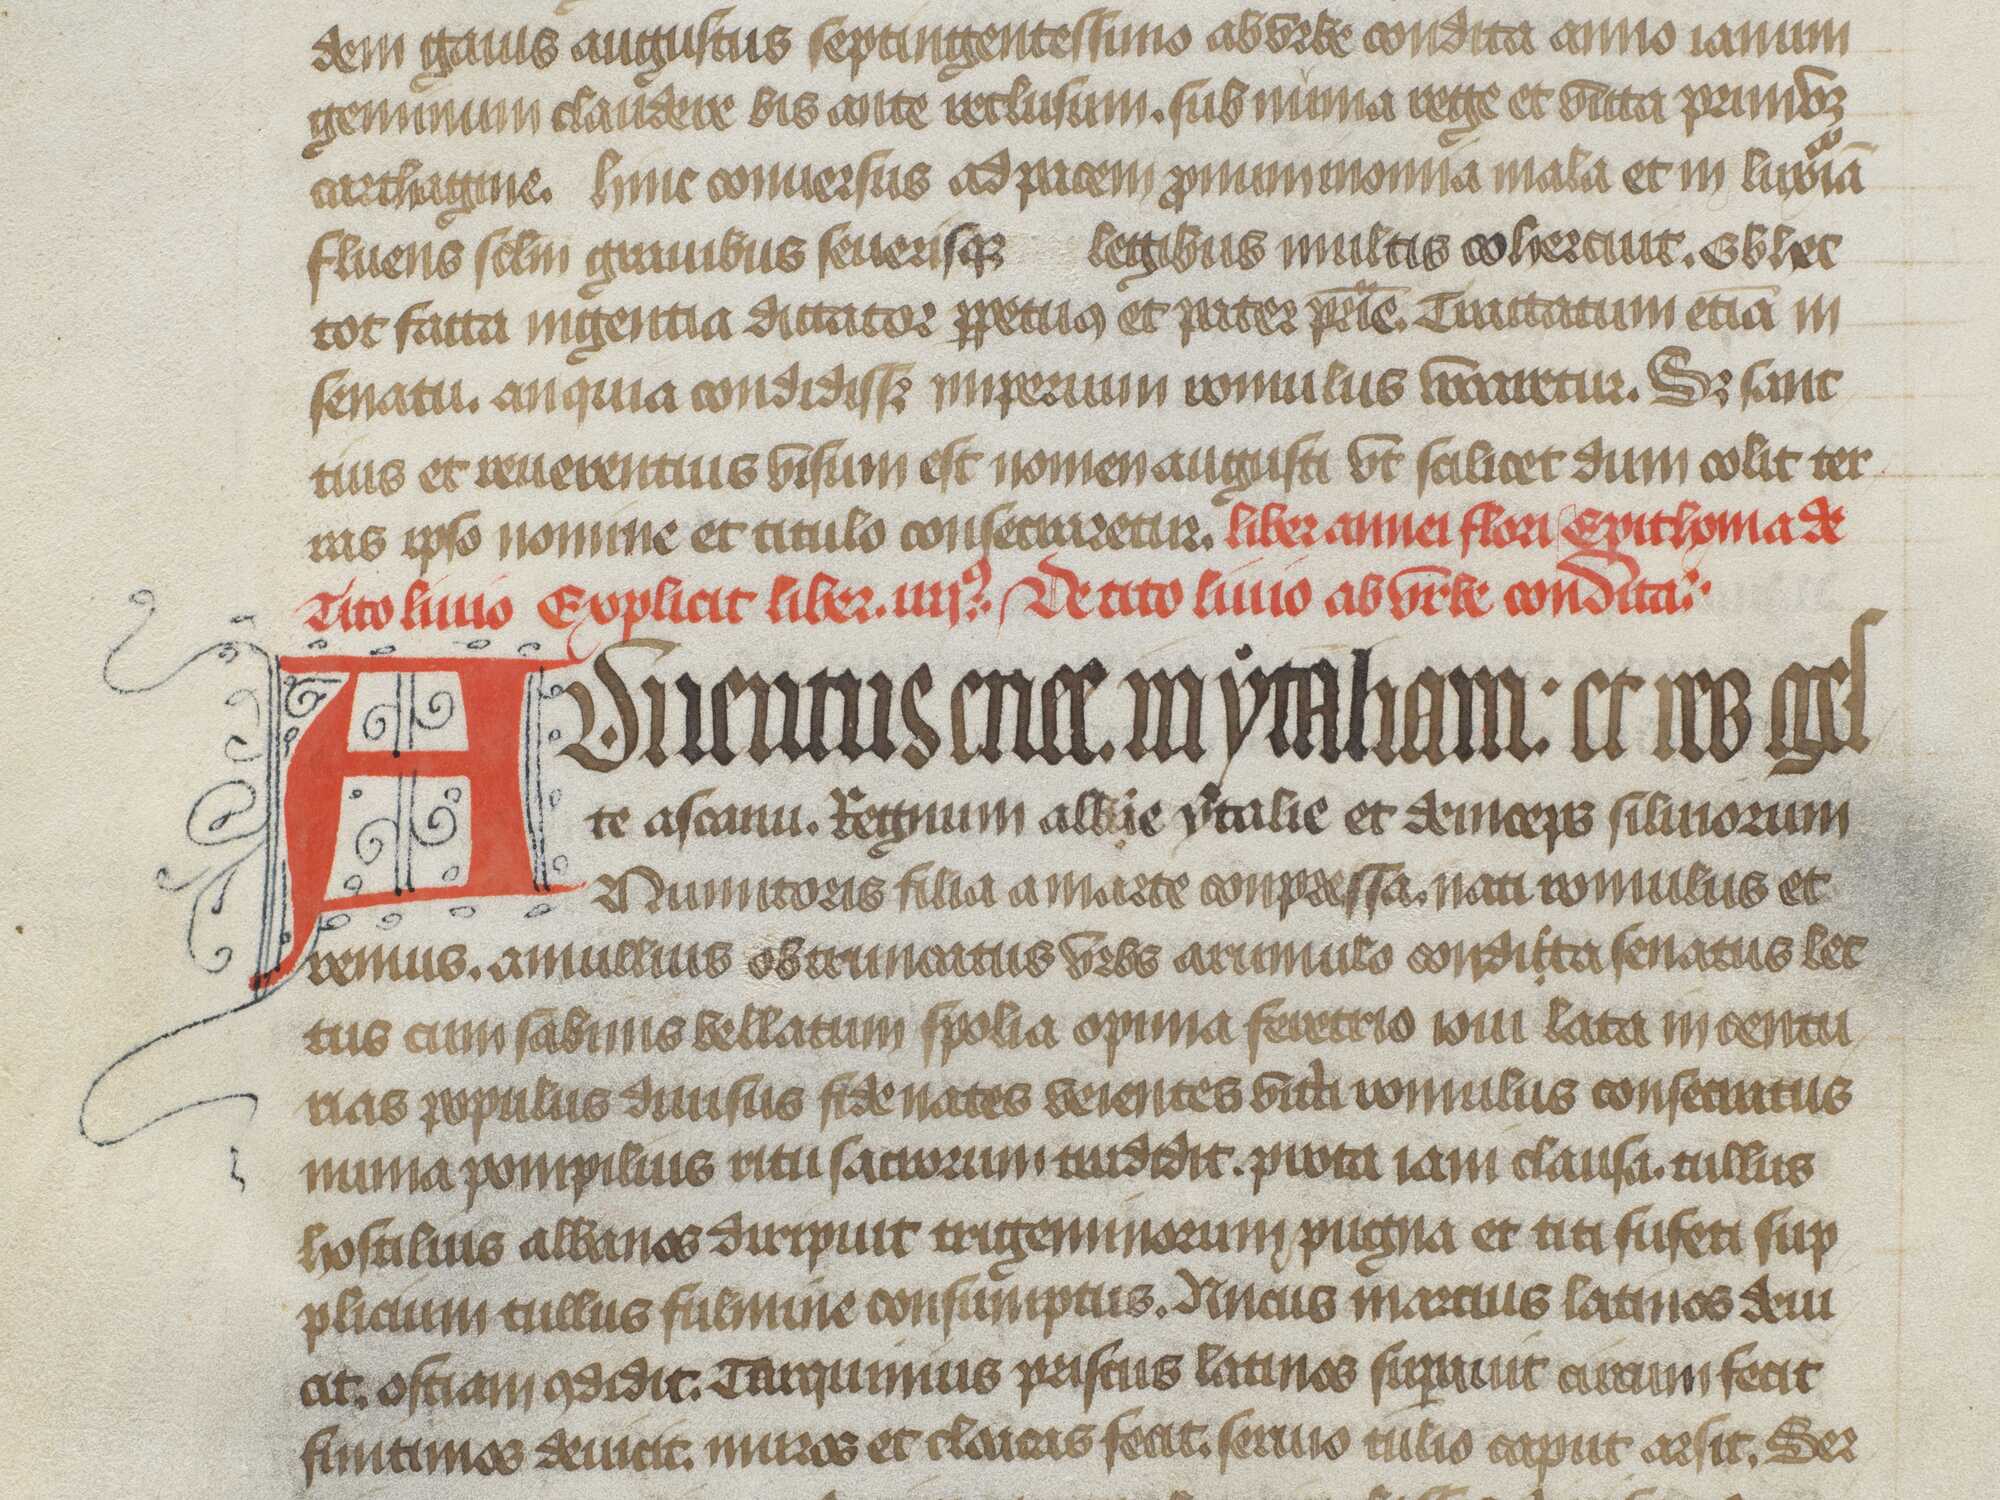 dem gauis augustus septingentessimo ab vrbe condita anno ianum
geminum claudere bis ante reclusum. sub numa rege et victa primū
carthagine. hinc conuersus ad pacem mala et in
fluens sclm grauibus seuerisqꝫ legibus multis cohercuit. Ob hec
tot facta ingentia dictator ꝑpetuꝯ et pater pr̄ie. Tractatum etiā in
senatu. an quia condidissꝫ imperium romulus vocaretur. Sꝫ sanc
tius et reuerentius visum est nomen augusti vt scilicet dum colit ter
ras ipso nomine et titulo consecraretur. liber annei flori Epithoma de
Tito liuio Explicit liber .iiijꝯ. De tito liuio ab vrbe condita:
ADuentus enee. in ytaliam: et res ges
te ascanii. Regnum albie ytalie et deinceps siluiorum
Numitoris filia a marte conpressa. nati romulus et
remus. amullius obtruncatus vrbs a rumulo condicta senatus lec
tus cum sabinis bellatum spolia opima feretrio ioui lata in centu
rias populus diuisus fidenates veientes victi romulus consecratus
numa pompilius ritu sacrorum tradidit. porta iani clausa. tullus
hostilius albanos diripuit trigeminorum pugna et titi fufeti sup
plicium tullus fulmine consumptus. Ancus marcius latinos deui
cit. ostiam ꝯdidit. Tarquinius priscus latinos superauit circum fecit
finitimos deuicit. muros et cloacas fecit. seruio tulio caput arsit. Ser